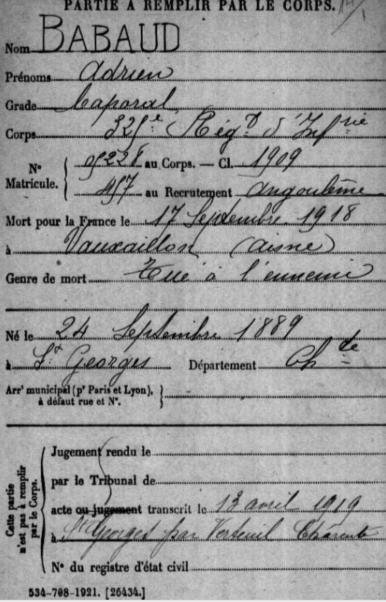 PARTIE À REMPLIR PAR LE CORPS.
Nom BABAUD
Prénoms Adrien
Grade Caporal
Corps 325e Régt d'Infrie
Nº Matricule. { 05228 au Corps. — Cl. 1909
457 au Recrutement Angoulême
Mort pour la France le 17 Septembre 1918
à Vauxaillon (Aisne)
Genre de mort Tué à l'ennemi
Né le 24 Septembre 1889
à St Georges Département Chte
Arrt municipal (pr Paris et Lyon), à défaut rue et Nº. }
Cette partie n'est pas à remplir par le Corps. {
Jugement rendu le
par le Tribunal de
acte ou jugement transcrit le 13 avril 1919
à St Georges par Verteuil Charente
Nº du registre d'état civil
534-708-1921. [26434.]